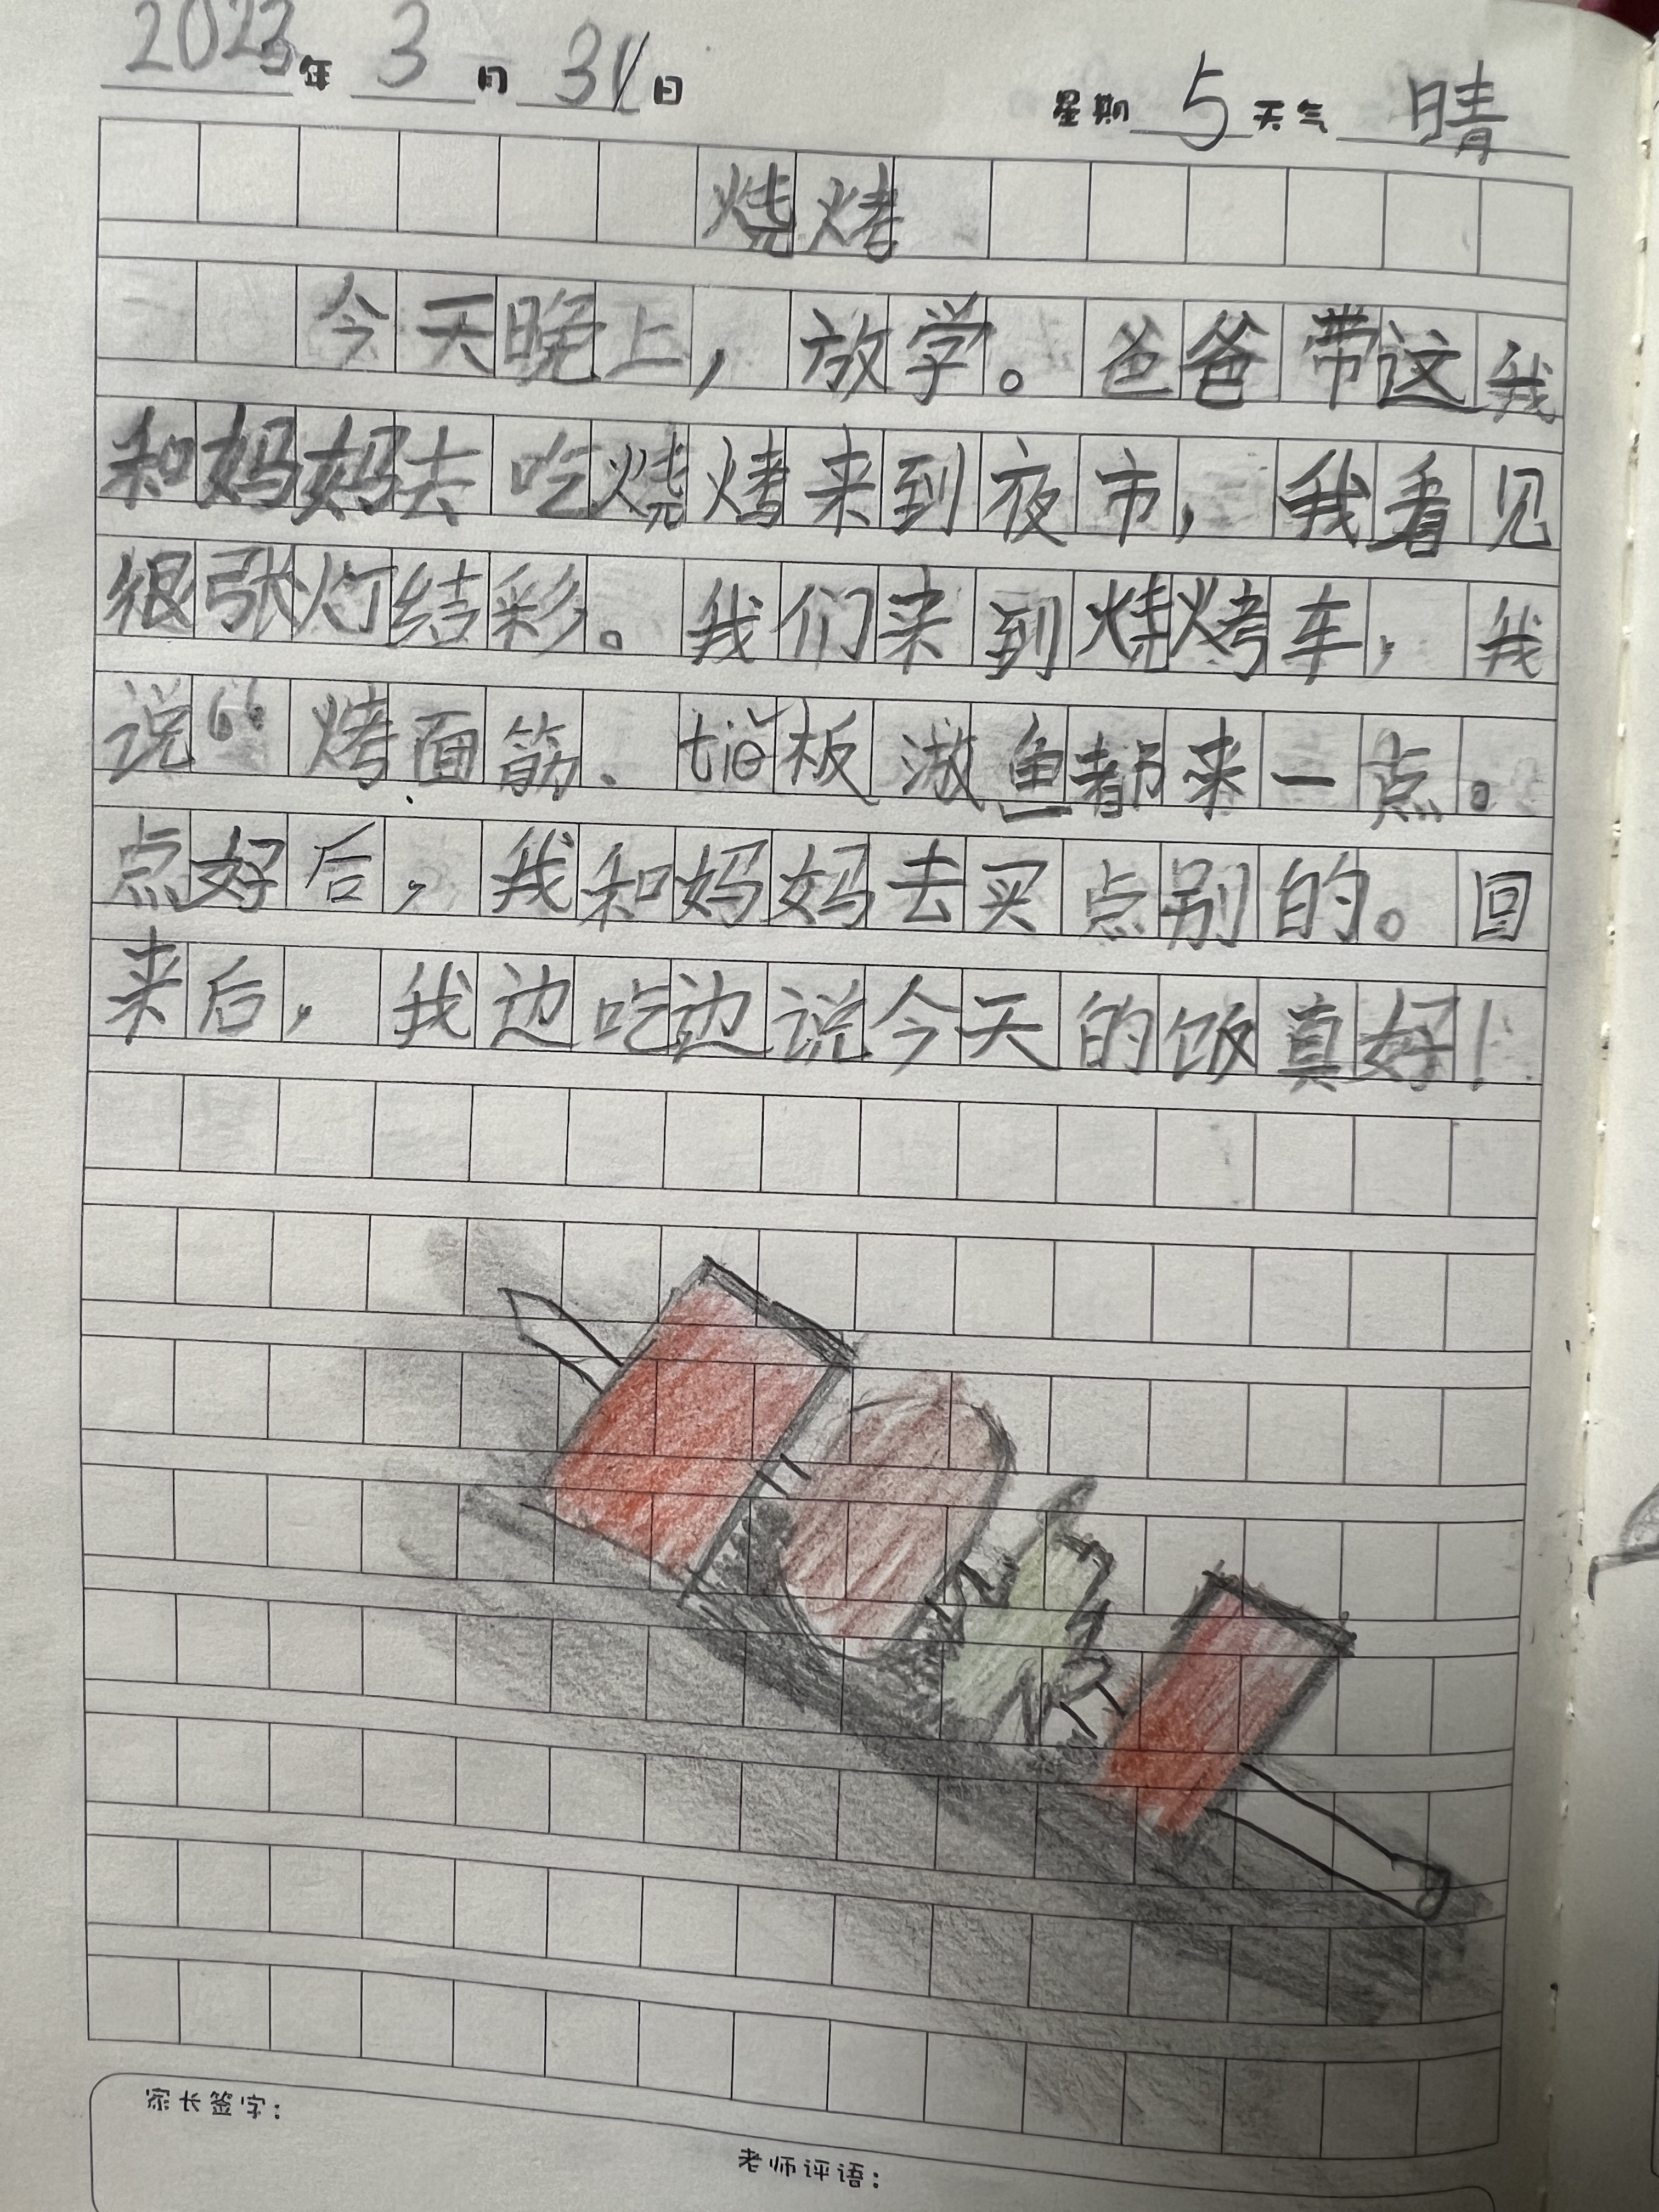 2023年 3月 31日 星期 5 天气 晴
烧烤
今天晚上，放学。爸爸带这我
和妈妈去吃烧烤来到夜市，我看见
很张灯结彩。我们来到烧烤车，我
说“烤面筋、tiě板 鱼都来一点。
点好后，我和妈妈去买点别的。回
来后，我边吃边说今天的饭真好！
家长签字：
老师评语：